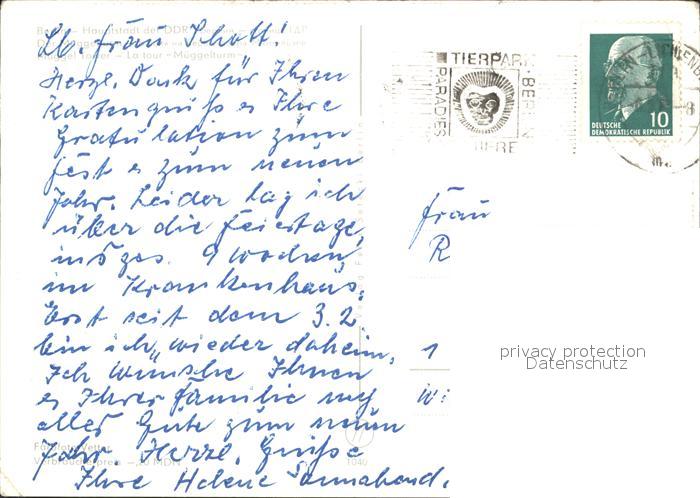 Berlin - Hauptstadt der DDR
Müggel Tower - La tour »Müggelturm«
Lb. Frau Schott!
Herzl. Dank für Ihren
Kartengruß u Ihre
Gratulation zum
Fest u zum neuen
Jahr. Leider lag ich
über die Feiertage,
insges. 9 Wochen,
im Krankenhaus.
Erst seit dem 3.2
bin ich wieder daheim.
Ich wünsche Ihnen
u Ihrer Familie
alles Gute zum neuen
Jahr. Herzl. Grüße
Ihre Helene Sonnabend.
Verbraucherpreis -,20 MDN
1040
TIERPARK
BERLIN
PARADIES
TIERE
10
DEUTSCHE
DEMOKRATISCHE REPUBLIK
Frau
R
1
Wi
privacy protection
Datenschutz